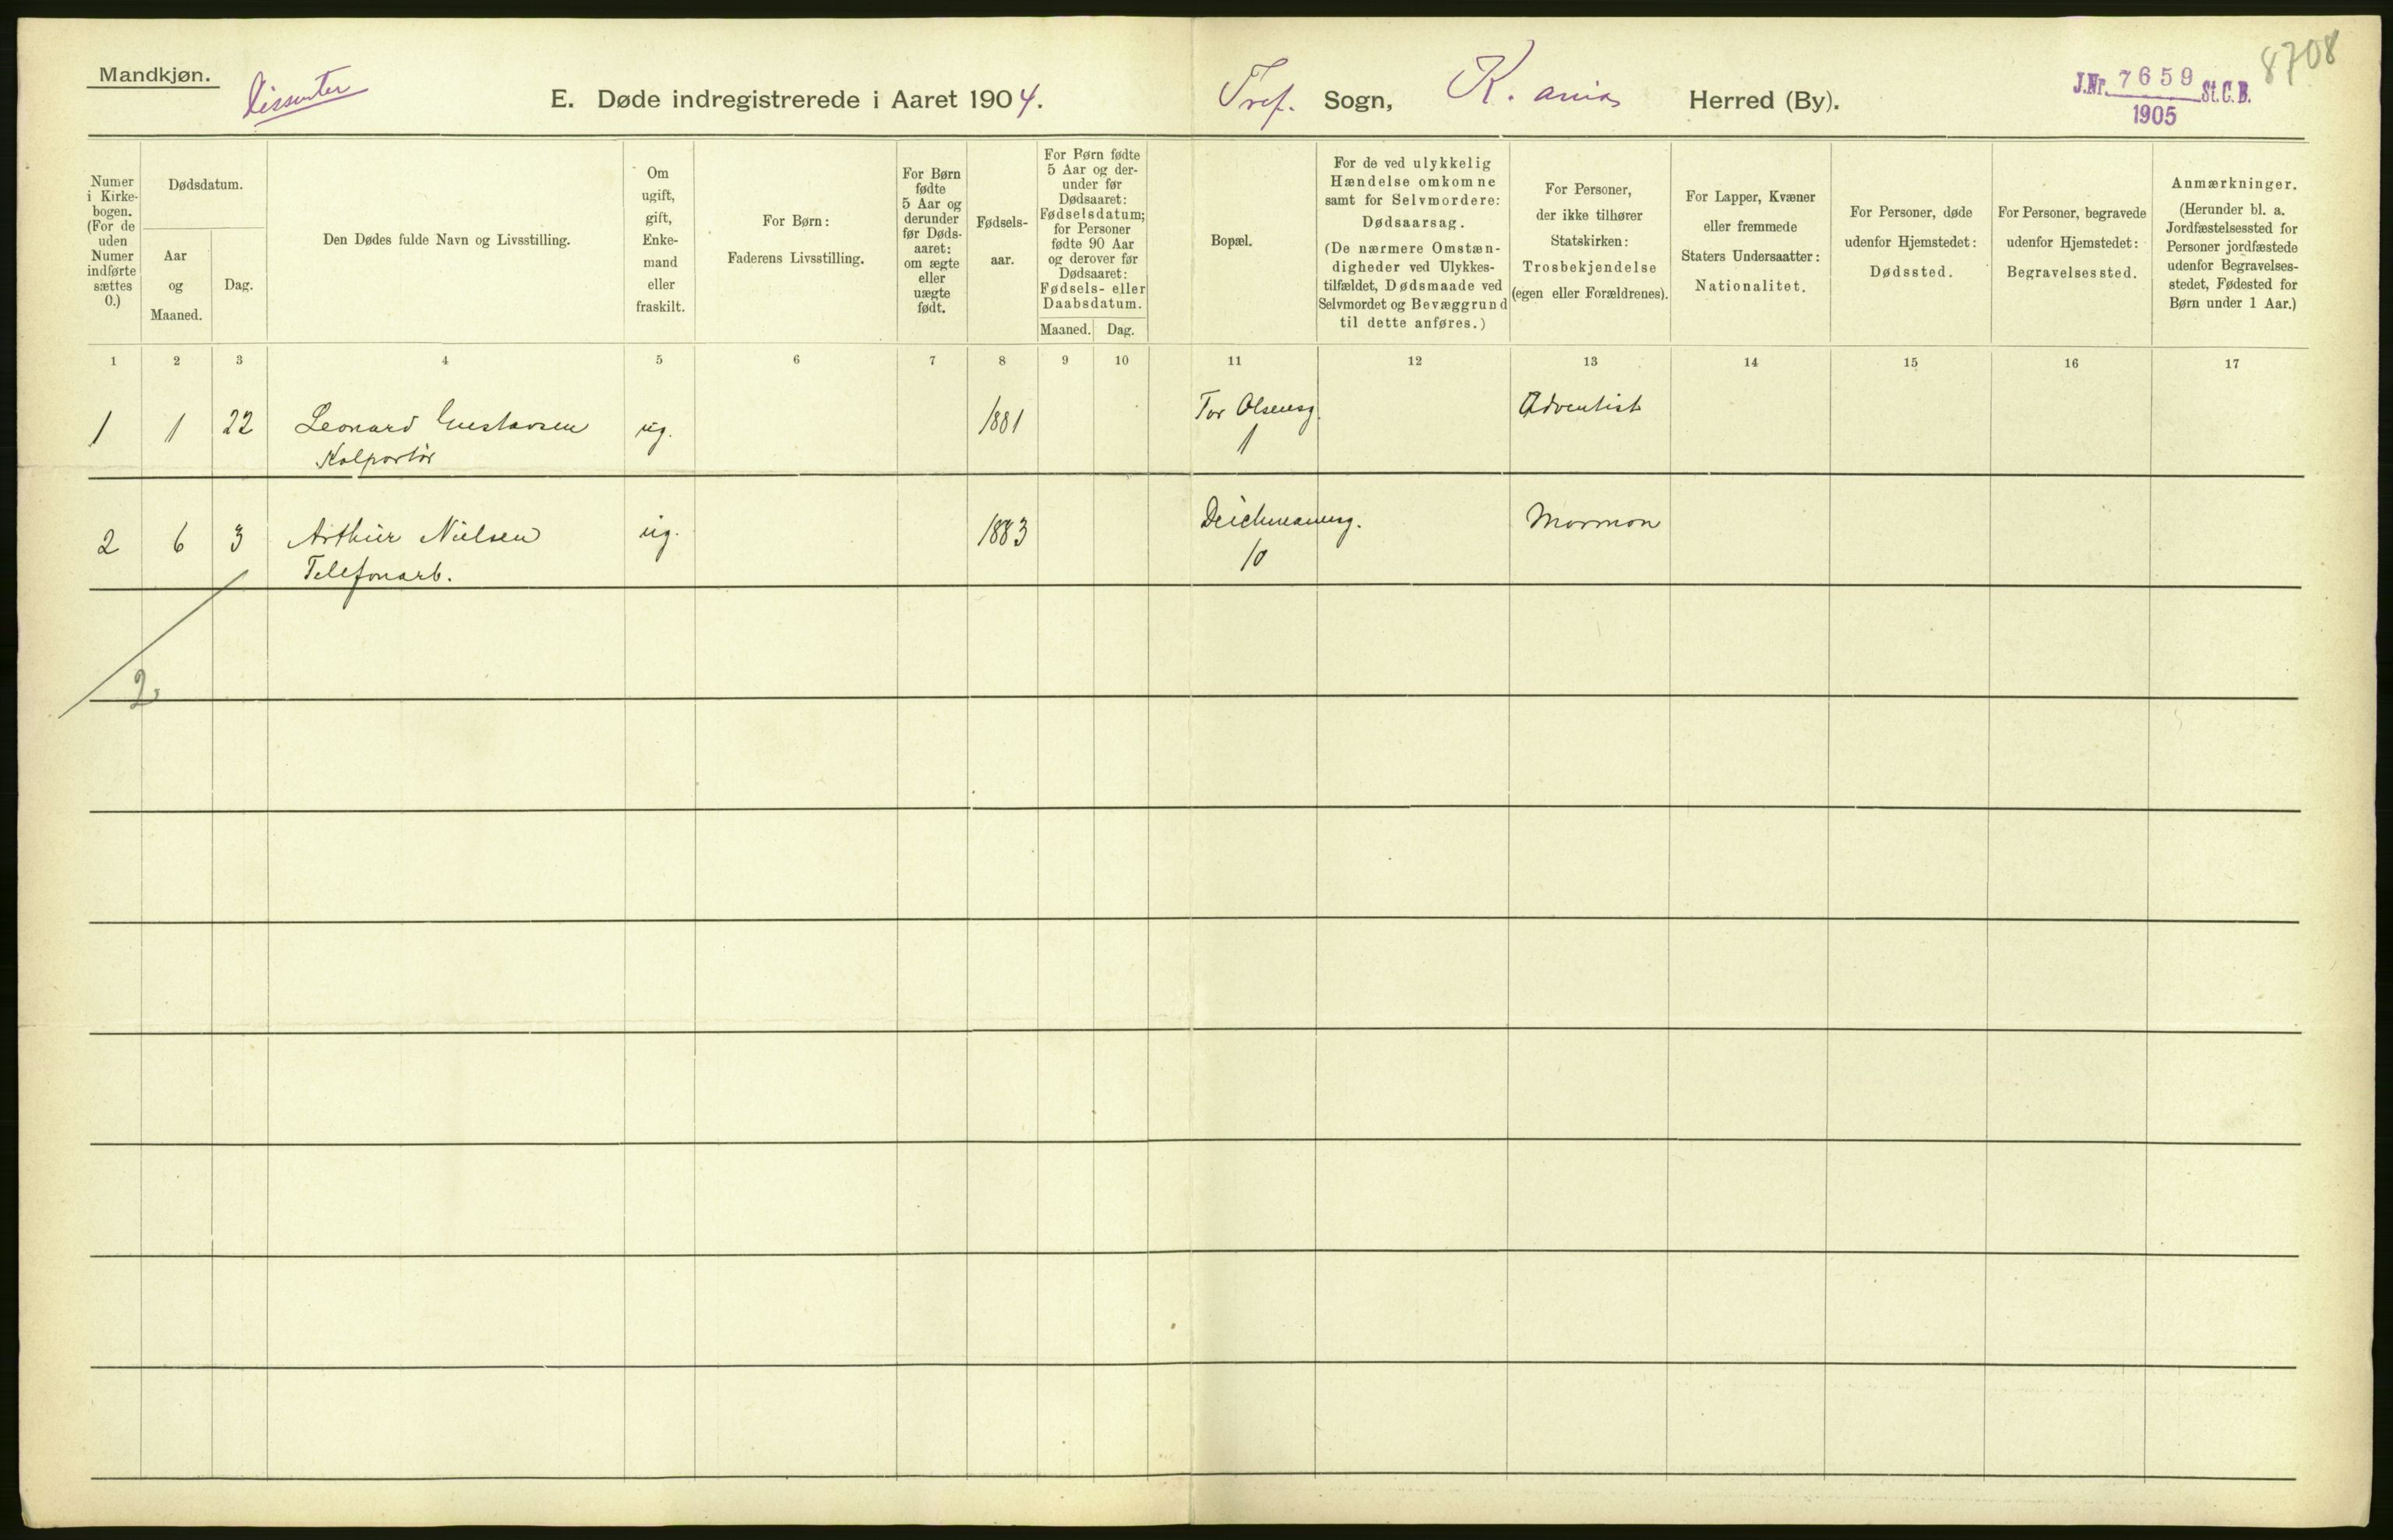 Mandkjøn.
Dissenter
E. Døde indregistrerede i Aaret 1904.
Tref. Sogn, K.ania Herred (By).
J.Nr. 7659 St.C.B.
1905
8708
Numer
i Kirke-
bogen.
(For de
uden
Numer
indførte
sættes
0.)
Dødsdatum.
Aar
og
Maaned.
Dag.
Den Dødes fulde Navn og Livsstilling.
Om
ugift,
gift,
Enke-
mand
eller
fraskilt.
For Børn:
Faderens Livsstilling.
For Børn
fødte
5 Aar og
derunder
før Døds-
aaret:
om ægte
eller
uægte
født.
Fødsels-
aar.
For Børn fødte
5 Aar og der-
under før
Dødsaaret:
Fødselsdatum;
for Personer
fødte 90 Aar
og derover før
Dødsaaret:
Fødsels- eller
Daabsdatum.
Maaned. Dag.
Bopæl.
For de ved ulykkelig
Hændelse omkomne
samt for Selvmordere:
Dødsaarsag.
(De nærmere Omstæn-
digheder ved Ulykkes-
tilfældet, Dødsmaade ved
Selvmordet og Bevæggrund
til dette anføres.)
For Personer,
der ikke tilhører
Statskirken:
Trosbekjendelse
(egen eller Forældrenes).
For Lapper, Kvæner
eller fremmede
Staters Undersaatter:
Nationalitet.
For Personer, døde
udenfor Hjemstedet:
Dødssted.
For Personer, begravede
udenfor Hjemstedet:
Begravelsessted.
Anmærkninger.
(Herunder bl. a.
Jordfæstelsessted for
Personer jordfæstede
udenfor Begravelses-
stedet, Fødested for
Børn under 1 Aar.)
1 2 3 4 5 6 7 8 9 10 11 12 13 14 15 16 17
1 1 22 Leonard Gustavsen ug. 1881 Tor Olsensg. Adventist
Kolportør 1
2 6 3 Arthur Nielsen ug. 1883 Deichmannsg. Mormon
Telefonarb. 10
2